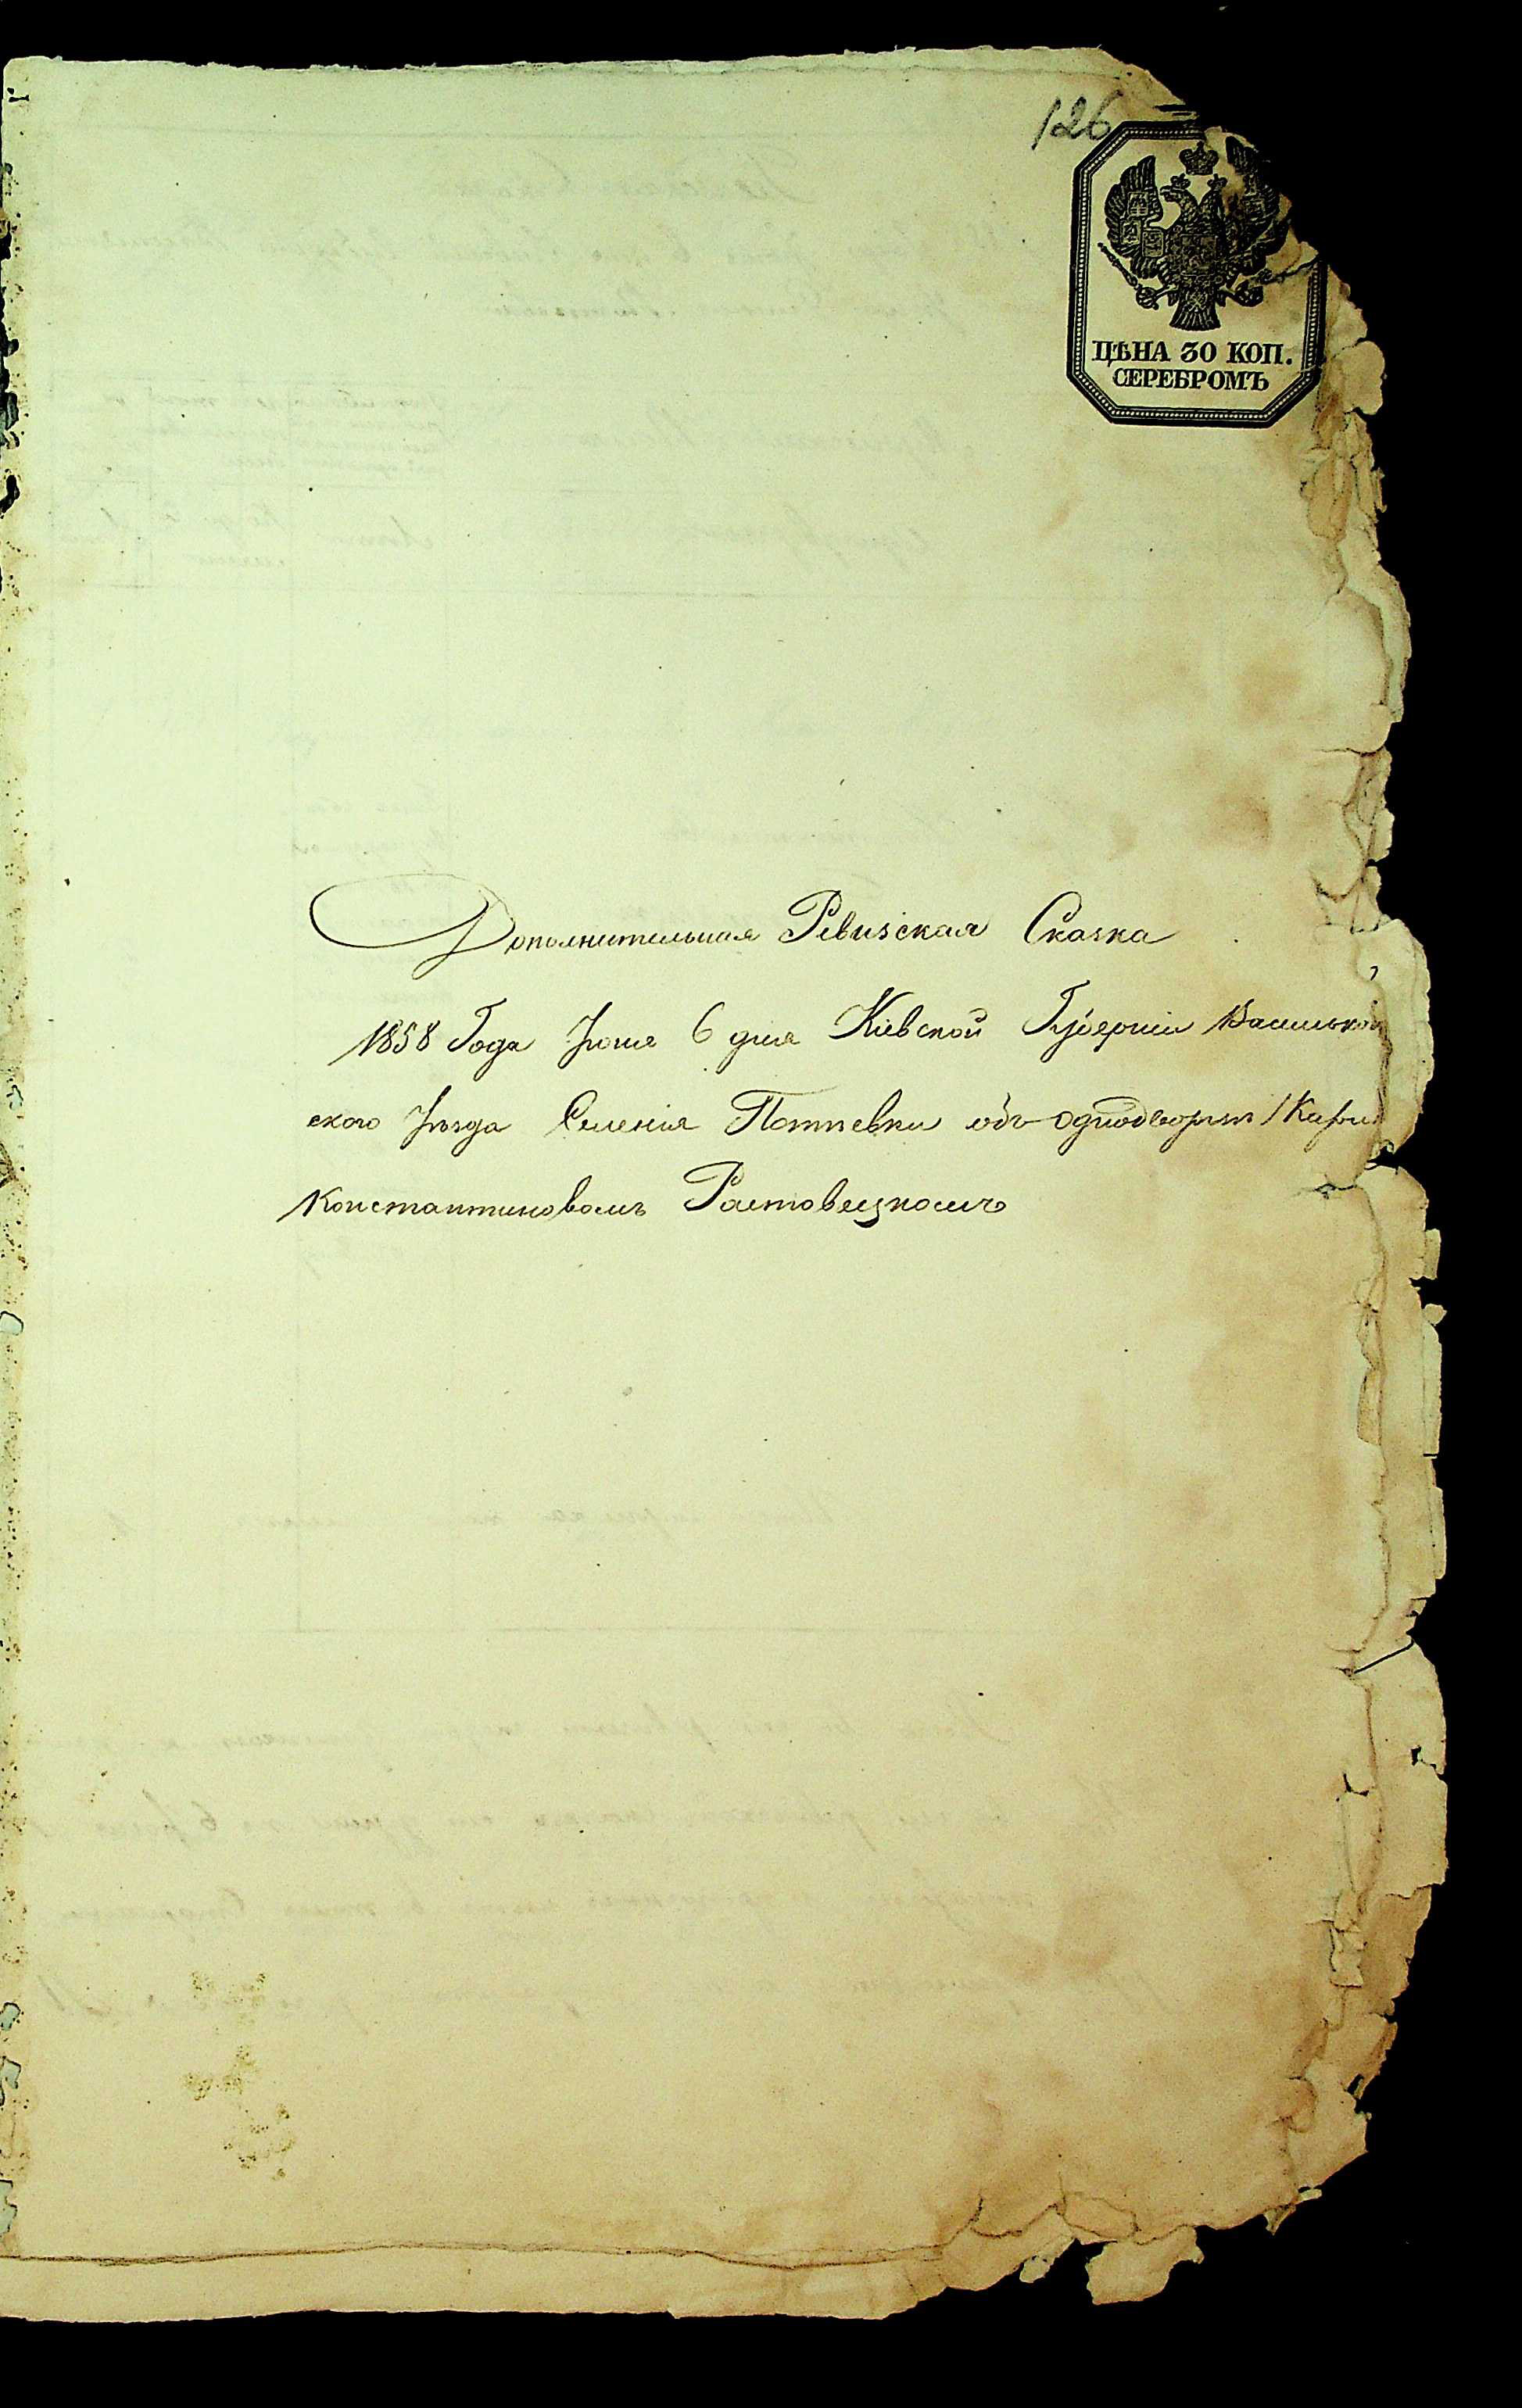 126
ЦѢНА 30 КОП.
СЕРЕБРОМЪ
Дополнительная Ревизская Сказка
1858 Года Июня 6 дня Кіевской Губерніи Васильков
ского Уѣзда Селенія Потіевки объ однодворцѣ
Константиновомъ Ростовецкомъ